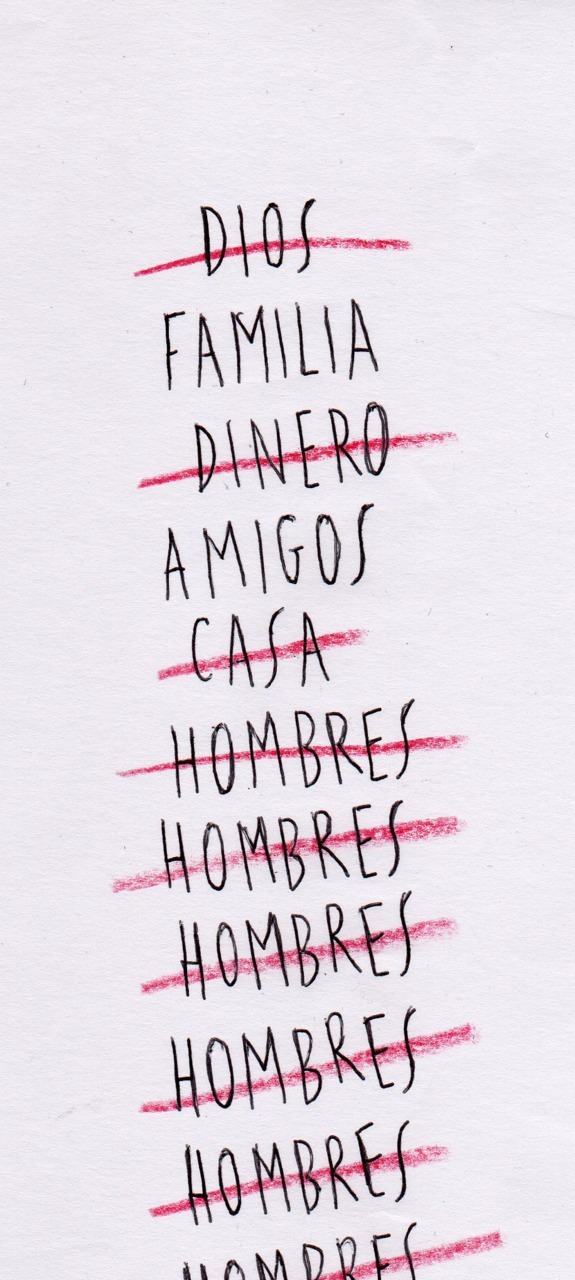 DIOS
FAMILIA
DINERO
AMIGOS
CASA
HOMBRES
HOMBRES
HOMBRES
HOMBRES
HOMBRES
HOMBRES